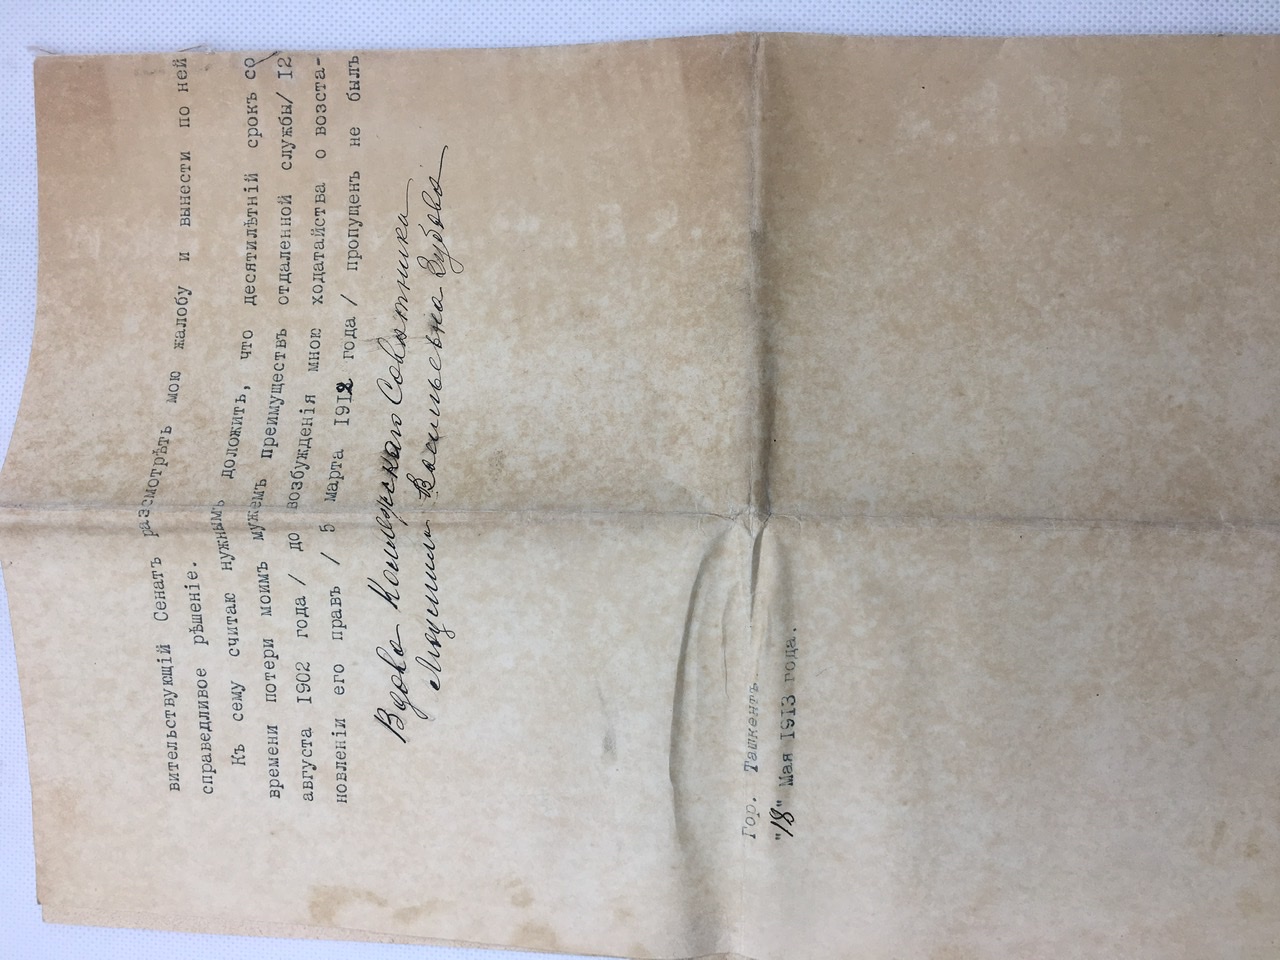 вительствующій Сенатъ разсмотрѣть мою жалобу и вынести по ней
справедливое рѣшеніе.
Къ сему считаю нужнымъ доложить, что десятилѣтній срокъ со
времени потери моимъ мужемъ преимуществъ отдаленной службы/ 12
августа 1902 года/ до возбужденія мною ходатайства о возста-
новленіи его правъ / 5 марта 1912 года/ пропущенъ не былъ
Вдова Коллежскаго Совѣтника
Васильевна Зубова
Гор. Ташкентъ.
"18" Мая 1913 года.